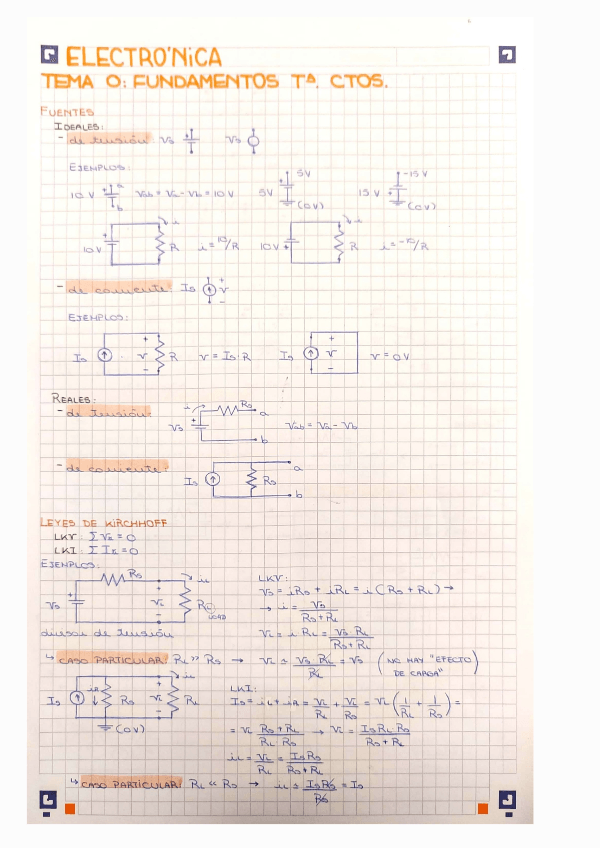 ELECTRÓNICA
TEMA 0: FUNDAMENTOS Tª. CTOS.
FUENTES
IDEALES:
- de tensión: Vs Vs
EJEMPLOS:
10 V a b Vab = Va - Vb = 10 V 5V 5V (0V) 15 V -15 V (0V)
10 V i R i = 10/R 10 V i R i = -10/R
- de corriente: Is v
EJEMPLOS:
Is v R v = Is · R Is v v = 0V
REALES:
- de tensión: Vs i Rs a b Vab = Va - Vb
- de corriente: Is Rs a b
LEYES DE KIRCHHOFF
LKV: Σ Vk = 0
LKI: Σ Ik = 0
EJEMPLOS:
Vs Rs iL VL RL LOAD
divisor de tensión
LKV:
Vs = iRs + iRL = i (Rs + RL) →
→ i = Vs / Rs + RL
VL = i RL = Vs RL / Rs + RL
↳ CASO PARTICULAR: RL >> Rs → VL ≈ Vs RL / RL = Vs (NO HAY "EFECTO DE CARGA")
Is iR Rs VL iL RL (0V)
LKI:
Is = iL + iR = VL/RL + VL/Rs = VL (1/RL + 1/Rs) =
= VL Rs + RL / RL Rs → VL = Is RL Rs / Rs + RL
iL = VL/RL = Is Rs / Rs + RL
↳ CASO PARTICULAR: RL << Rs → iL ≈ Is Rs / Rs = Is